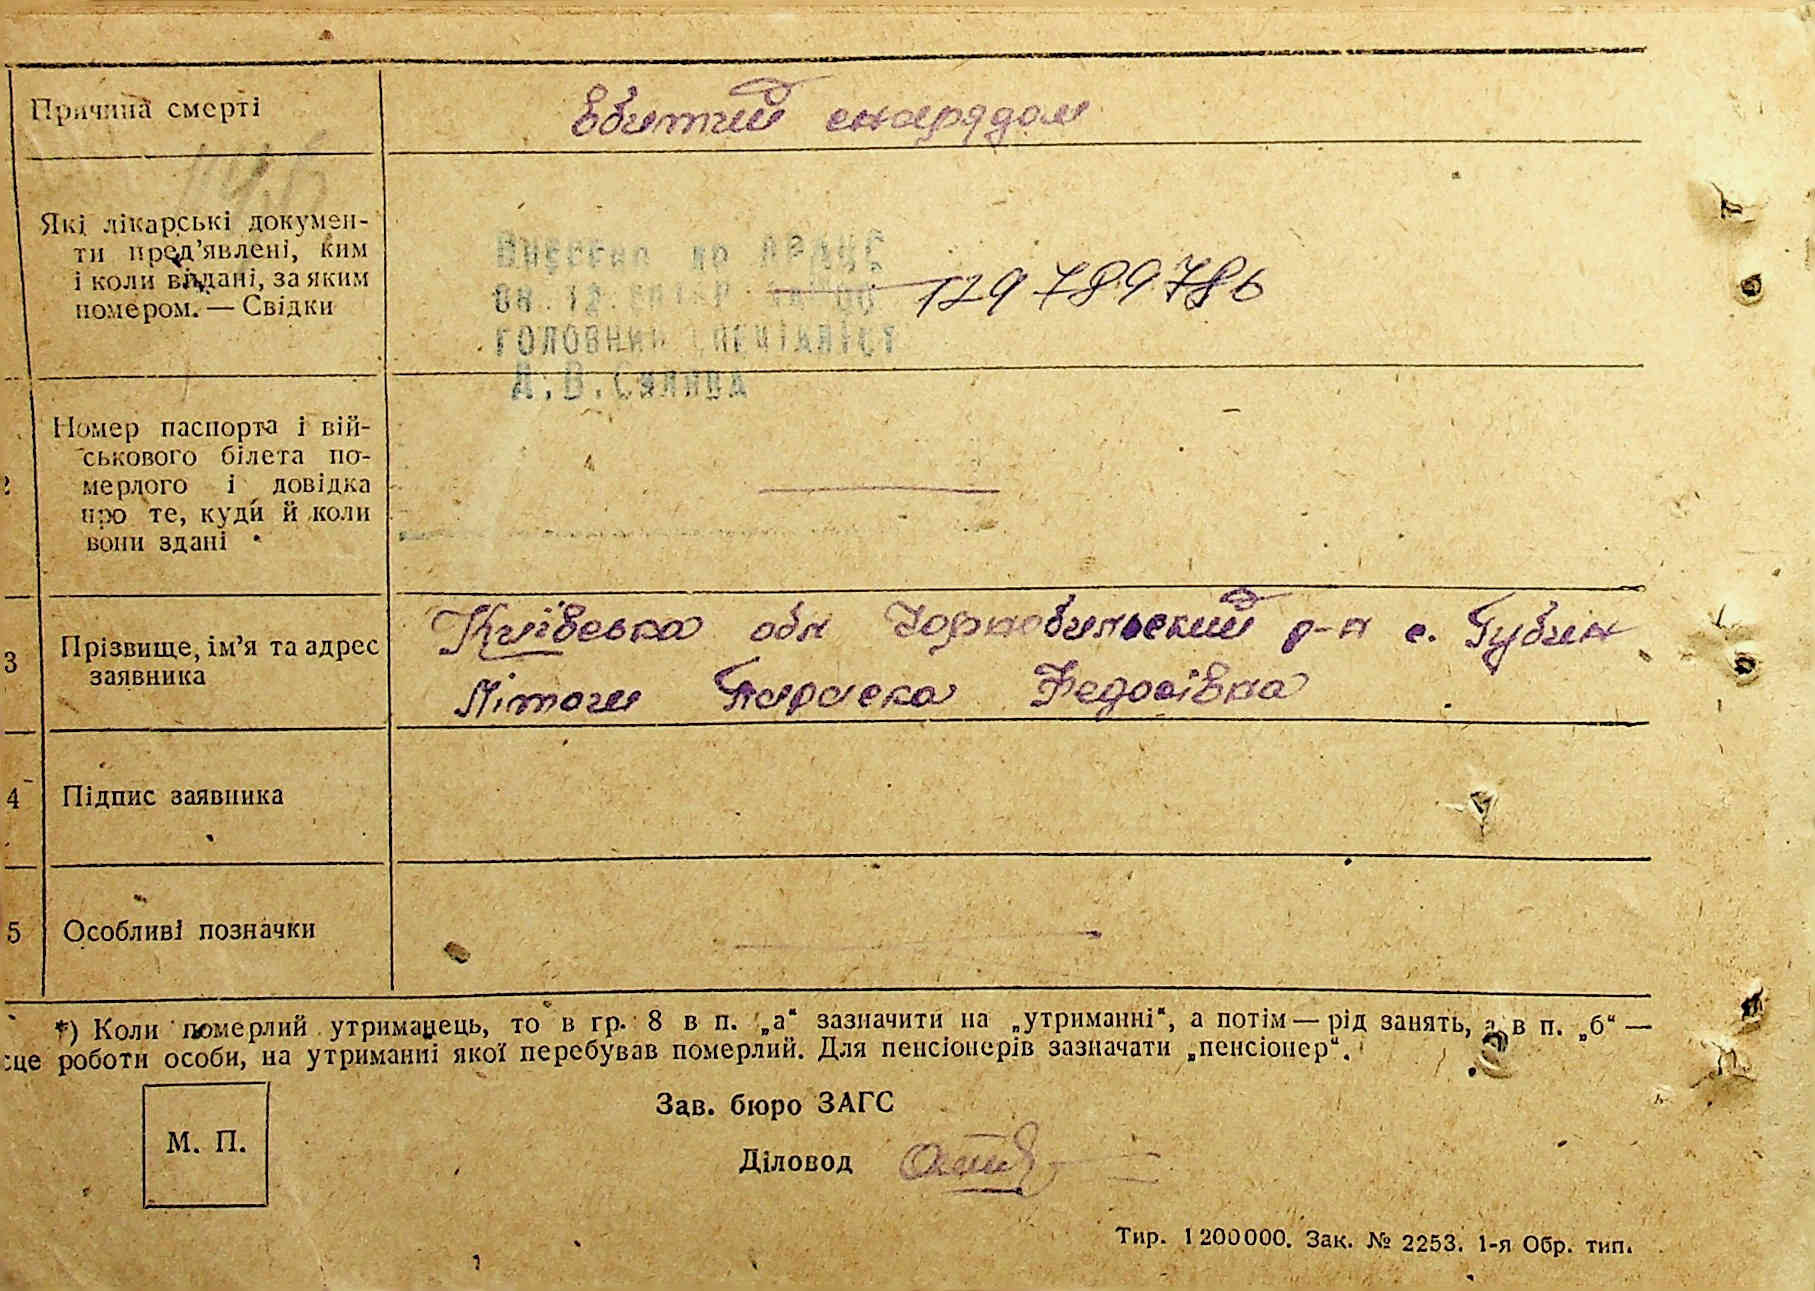 Причина смерті
Вбитий снарядом
Які лікарські докумен-
ти пред’явлені, ким
і коли видані, за яким
номером. — Свідки
Внесено до ДРАЦС
08.12.
головний спеціаліст
А.В.
12978978б
Номер паспорта і вій-
ськового білета по-
мерлого і довідка
про те, куди й коли
вони здані
3
Прізвище, ім’я та адрес
заявника
Київська обл Чорнобильський р-н с. Губин
Літоги Параска Федосівна
4
Підпис заявника
5
Особливі позначки
*) Коли померлий утриманець, то в гр. 8 в п. „а“ зазначити на „утриманні“, а потім — рід занять, а в п. „б“ —
це роботи особи, на утриманні якої перебував померлий. Для пенсіонерів зазначати „пенсіонер“.
М. П.
Зав. бюро ЗАГС
Діловод
Тир. 1200000. Зак. № 2253. 1-я Обр. тип.